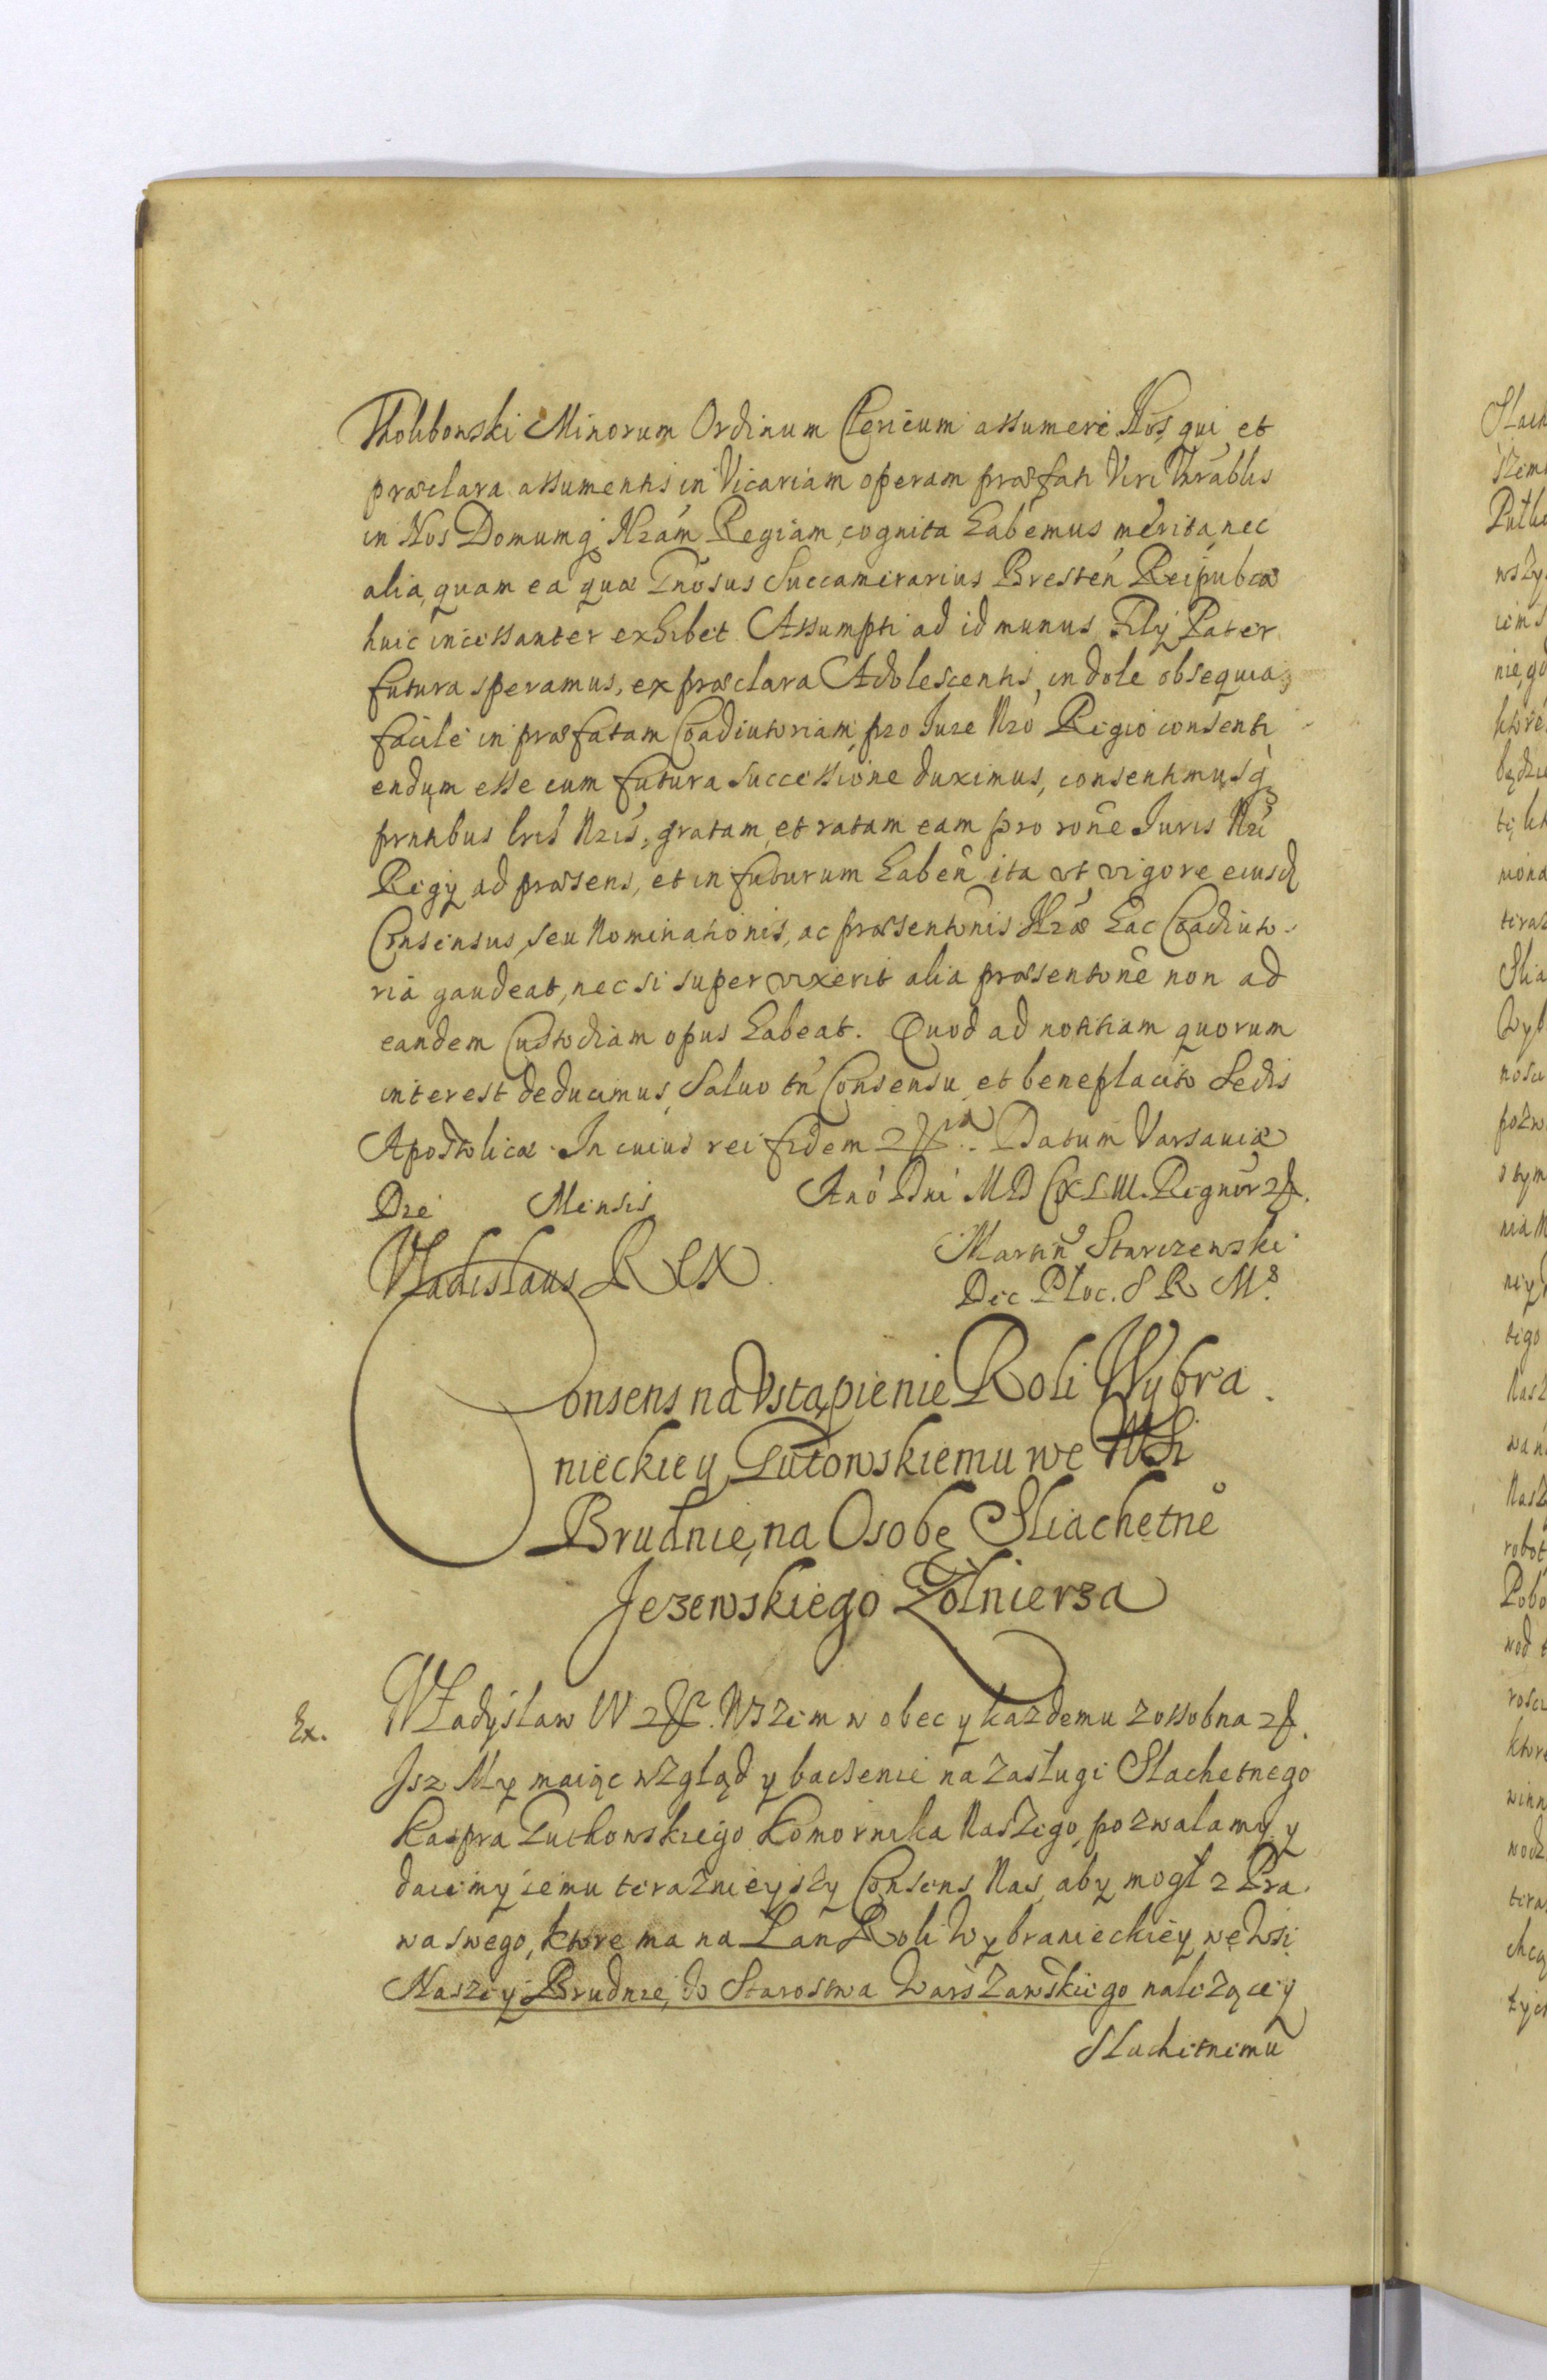 Tholibowski Minorum Ordinum Clericum assumere Nos qui et
præclara assumentis in Vicariam operam præfati Viri Vnrablis
in Nos Domumq Nram Regiam, cognita habemus merita, nec
alia, quam ea quæ Gnosus Succamerarius Bresten Reipubcæ
huic incessanter exhibet Assumpti ad id munus Filij Pater
futura speramus, ex præclara Adolescentis, indole obsequia,
facile in præfatam Coadiutoriam, pro Jure Nro Regio consenti
endum esse cum futura successione duximus, consentimusq
prntibus lris Nris, gratam, et ratam eam pro rone Juris Nri
Regij ad præsens, et in futurum haben ita vt vigore eiusd
Consensus, seu Nominationis, ac præsentonis Nræ hac Coadiuto-
ria gaudeat, nec si supervixerit alia præsentone non ad
eandem Custodiam opus habeat. Quod ad notitiam quorum
interest deducimus, Saluo tn Consensu, et beneplacito Sedis
Apostolicæ. In cuius rei fidem Datum Varsauiæ
Die Mensis Ano Dni MDCXLIII. Regnor
Vladislaus Rex Martin Starczewski
Dec Ploc. S R M.
Consens na Vstąpienie Roli Wybra
nieckiey Lutowskiemu we Wsi
Brudnie, na Osobę Sliachetne
Jezewskiego Żołnierza
Ex. Władysław IV Wszem w obec y każdemu zossobna
Jsz My maiąc wzgląd y baczenie na zasługi Slachetnego
Kaspra Luthowskiego Komornika Naszego, pozwalamy y
daiemy iemu teraznieyszy Consens Nas, aby mogł z Pra
wa swego, ktore ma na Łan Roli Wybranieckiey we Wsi
Naszey Brudnie, do Starostwa Warszawskiego należącey
Slachetnemu